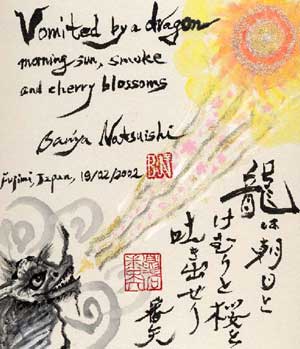 Vomited by a dragon
morning sun, smoke
and cherry blossoms
Ban'ya Natsuishi
Fujimi, Japan, 19/02/2002
BN
龍は朝日と
けむりと桜を
吐き出せり
番矢